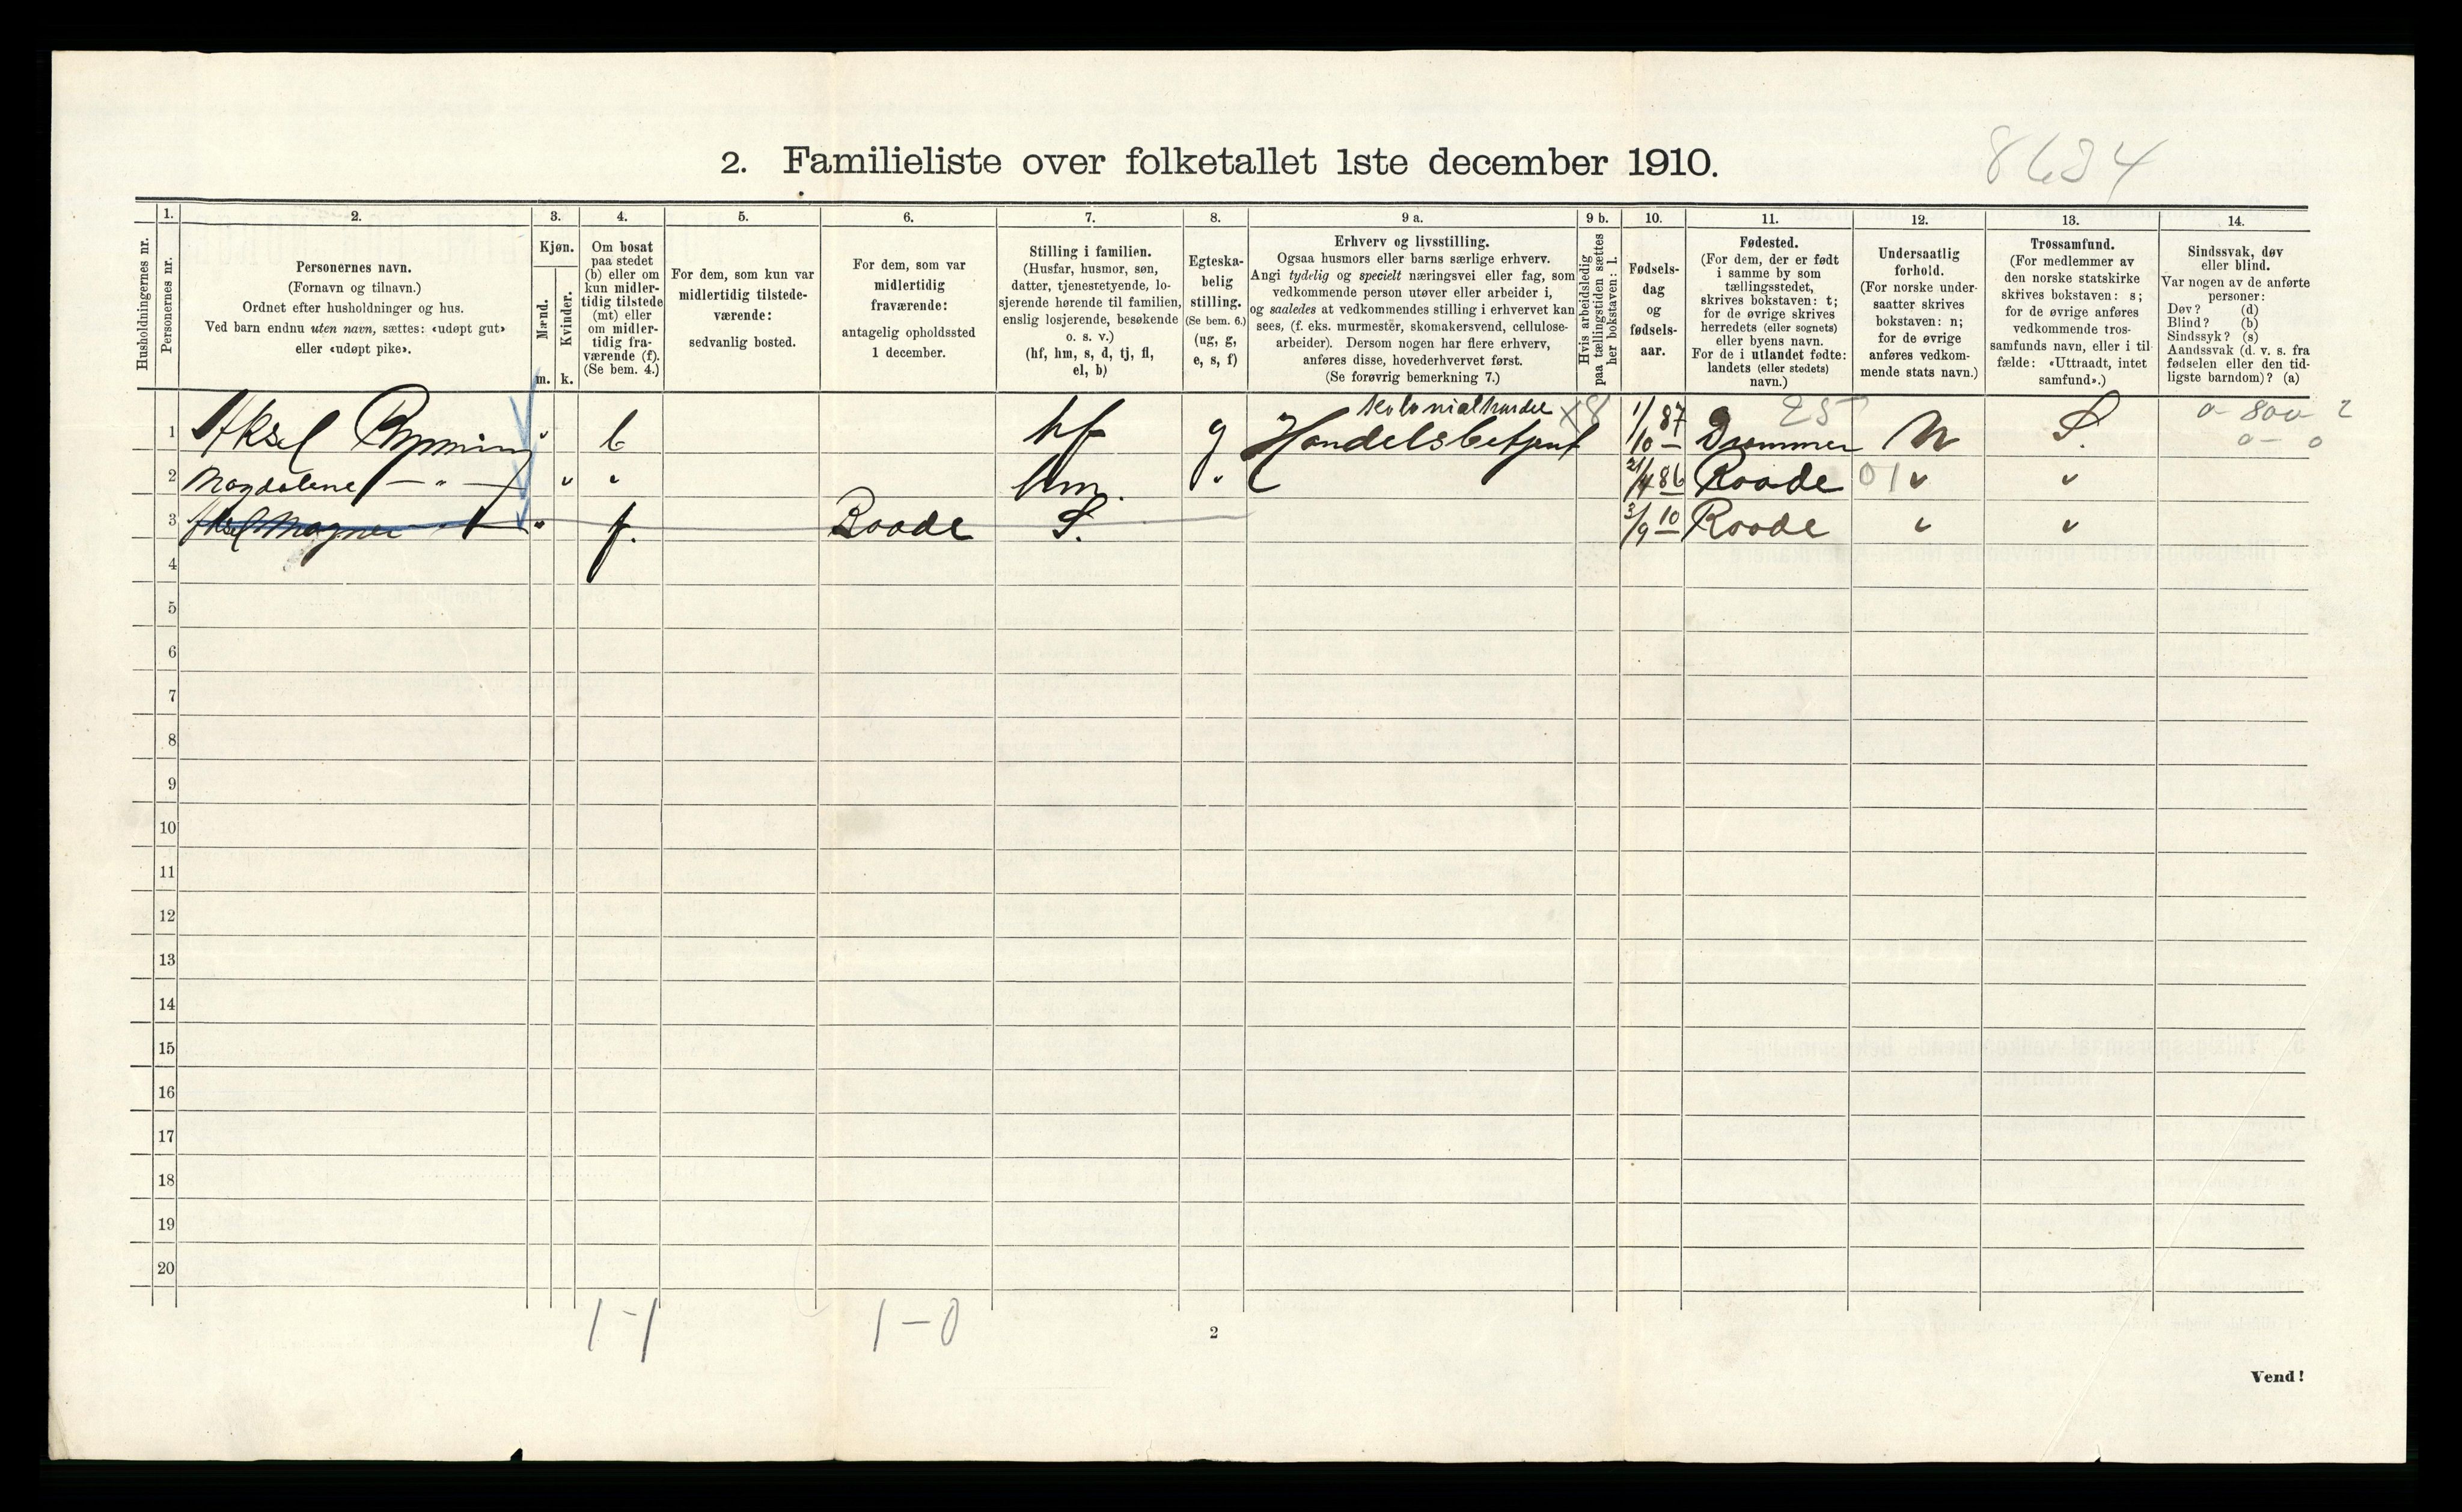 2. Familieliste over folketallet 1ste december 1910.
8634
Husholdningernes nr.
1.
Personernes nr.
2.
Personernes navn.
(Fornavn og tilnavn.)
Ordnet efter husholdninger og hus.
Ved barn endnu uten navn, sættes: «udøpt gut»
eller «udøpt pike».
3.
Kjøn.
Mænd.
m.
Kvinder.
k.
4.
Om bosat
paa stedet
(b) eller om
kun midler-
tidig tilstede
(mt) eller
om midler-
tidig fra-
værende (f).
(Se bem. 4.)
5.
For dem, som kun var
midlertidig tilstede-
værende:
sedvanlig bosted.
6.
For dem, som var
midlertidig
fraværende:
antagelig opholdssted
1 december.
7.
Stilling i familien.
(Husfar, husmor, søn,
datter, tjenestetyende, lo-
sjerende hørende til familien,
enslig losjerende, besøkende
o. s. v.)
(hf, hm, s, d, tj, fl,
el, b)
8.
Egteska-
belig
stilling.
(Se bem. 6.)
(ug, g,
e, s, f)
9 a.
Erhverv og livsstilling.
Ogsaa husmors eller barns særlige erhverv.
Angi tydelig og specielt næringsvei eller fag, som
vedkommende person utøver eller arbeider i,
og saaledes at vedkommendes stilling i erhvervet kan
sees, (f. eks. murmester, skomakersvend, cellulose-
arbeider). Dersom nogen har flere erhverv,
anføres disse, hovederhvervet først.
(Se forøvrig bemerkning 7.)
9 b.
Hvis arbeidsledig
paa tællingstiden sættes
her bokstaven: l.
10.
Fødsels-
dag
og
fødsels-
aar.
11.
Fødested.
(For dem, der er født
i samme by som
tællingsstedet,
skrives bokstaven: t;
for de øvrige skrives
herredets (eller sognets)
eller byens navn.
For de i utlandet fødte:
landets (eller stedets)
navn.)
12.
Undersaatlig
forhold.
(For norske under-
saatter skrives
bokstaven: n;
for de øvrige
anføres vedkom-
mende stats navn.)
13.
Trossamfund.
(For medlemmer av
den norske statskirke
skrives bokstaven: s;
for de øvrige anføres
vedkommende tros-
samfunds navn, eller i til-
fælde: «Uttraadt, intet
samfund».)
14.
Sindssvak, døv
eller blind.
Var nogen av de anførte
personer:
Døv? (d)
Blind? (b)
Sindssyk? (s)
Aandssvak (d. v. s. fra
fødselen eller den tid-
ligste barndom)? (a)
Kolonialhandel X8 25 0-800-2
1 Aksel b hf g Handelsbetjent 1/10 87 Drammen N S. 0- 0
2 Magdalene — " — " " hm. " 21/4 86 Raade 01 " "
3 Aksel Magnus " f. Raade S. 3/9 10 Raade " "
4
5
6
7
8
9
10
11
12
13
14
15
16
17
18
19
20
1-1 1-0
2
Vend!